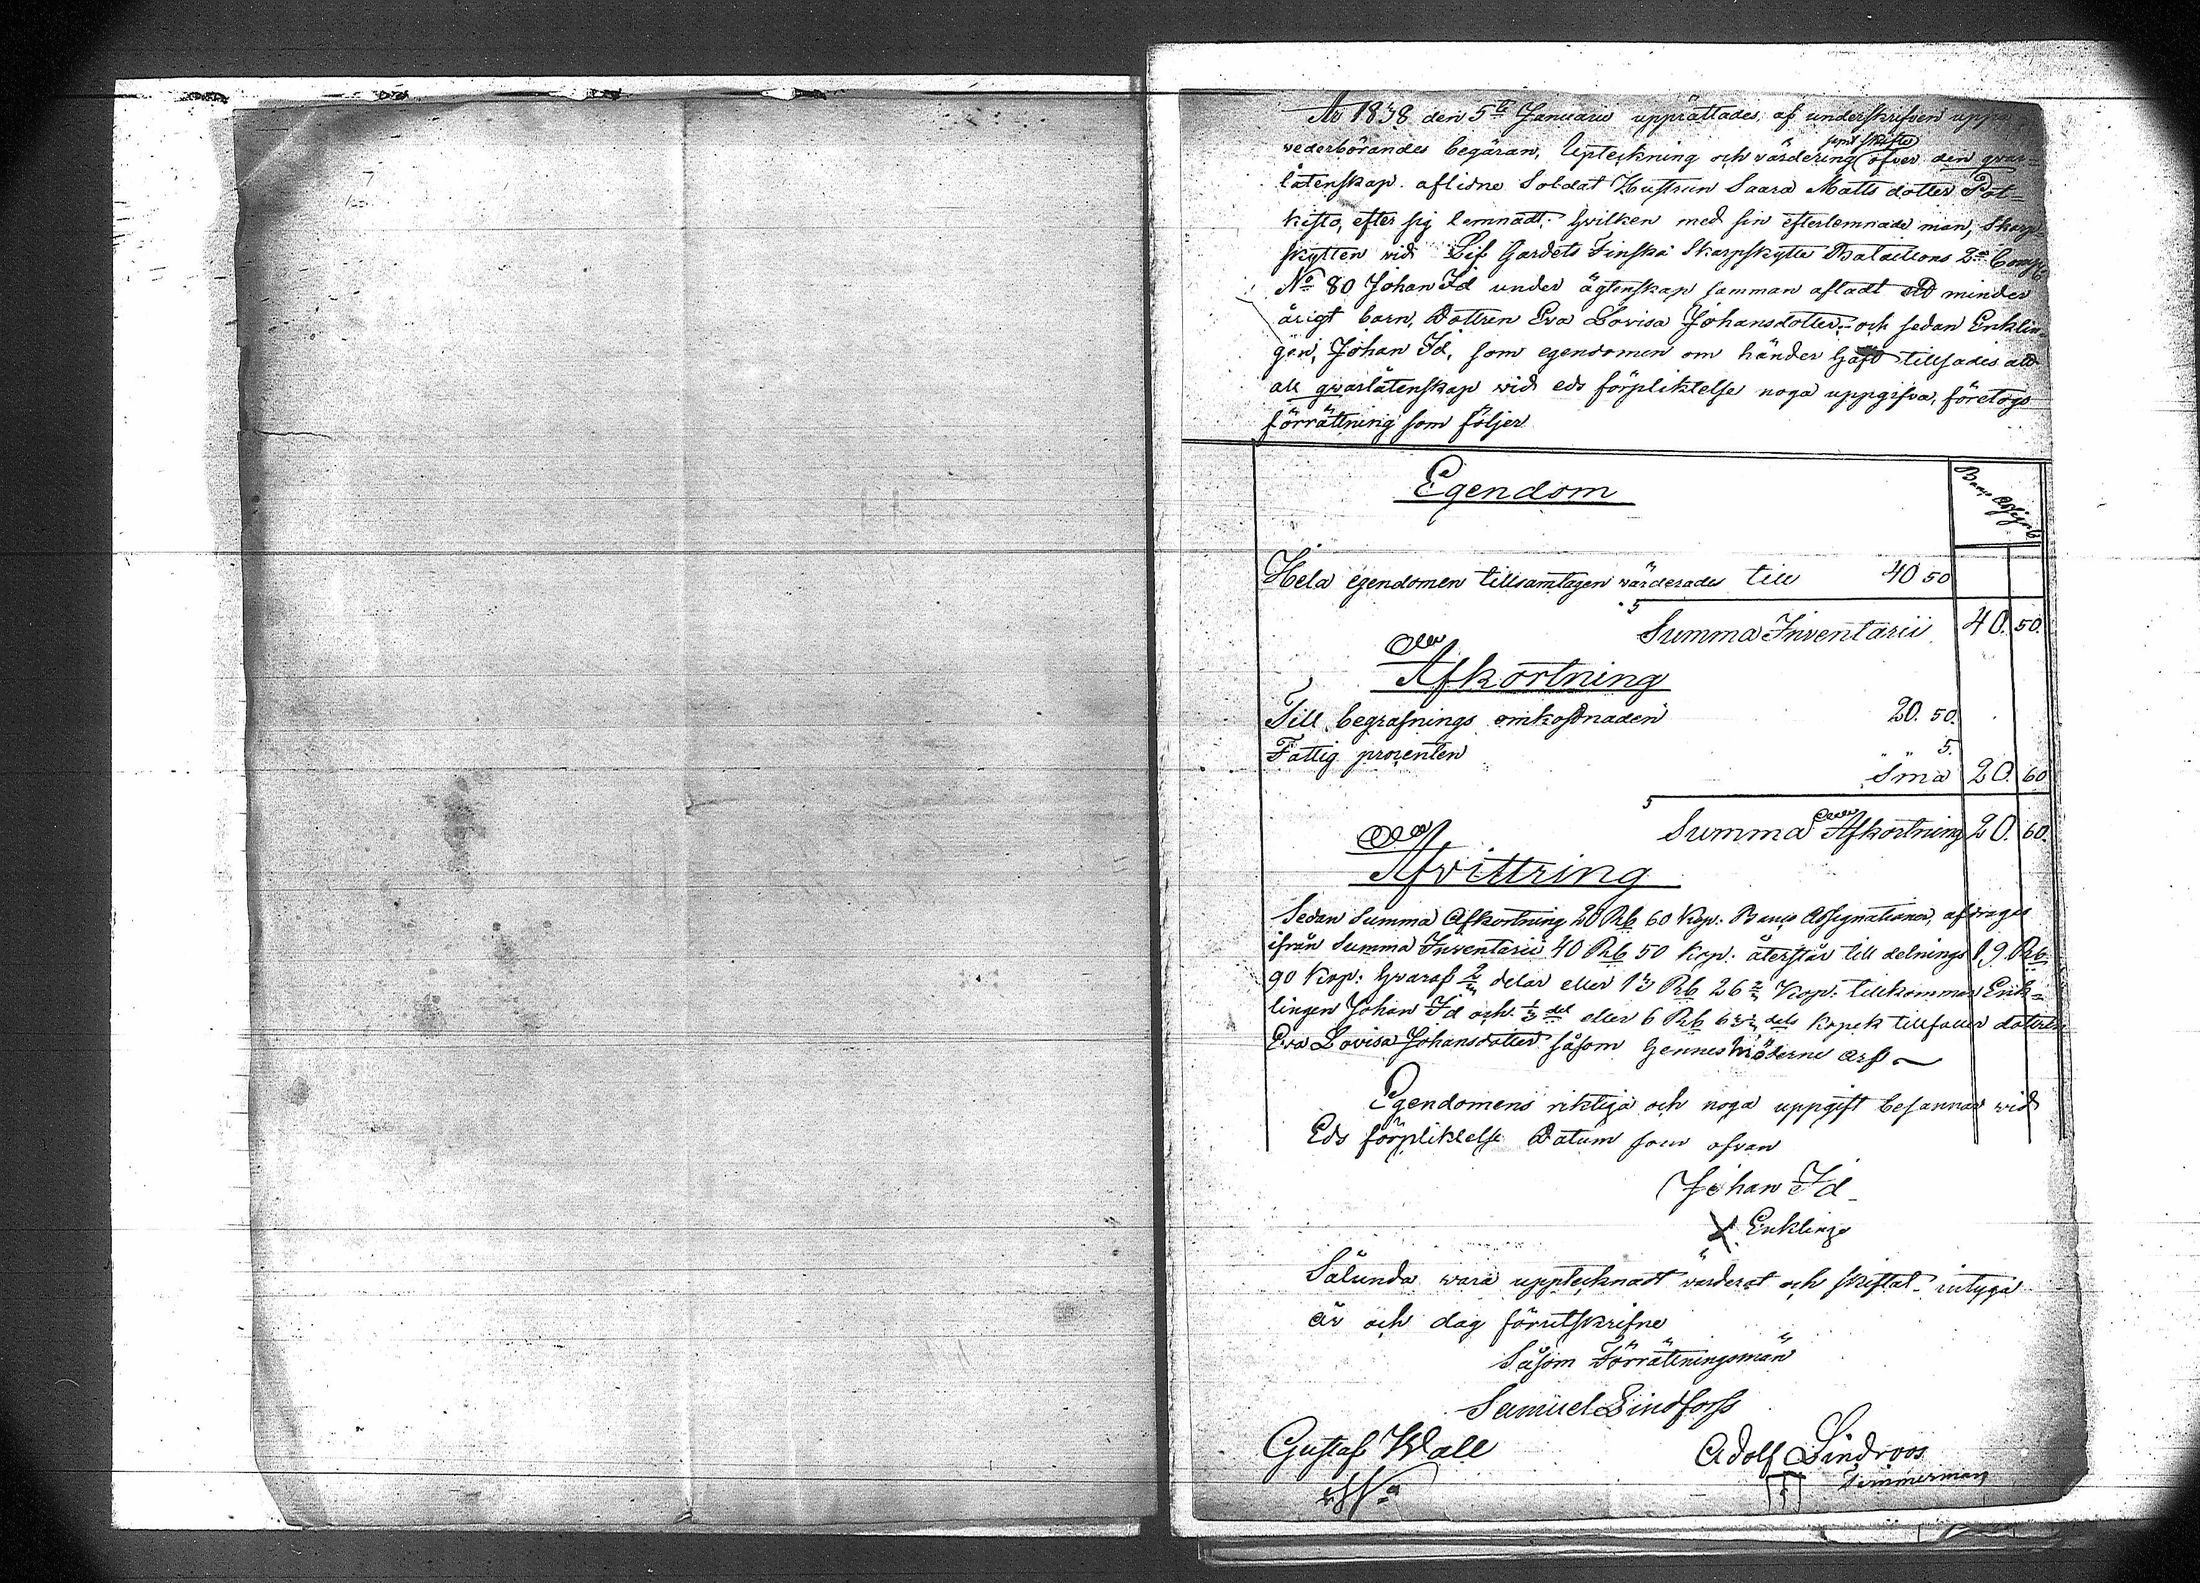 År 1838 den 5te Januarii upprättades, af underskrifven uppå
samt skifte
vederbörandes begäran, Upteckning och värdering öfver den qvar=
låtenskap aflidne Soldat Hustrun Saara Matts dotter Pat=
kisto, efter sig lemnadt, hvilken med sin efterlemnade man, Skarp
skytten vid Lif Gardets Finska Skarpskytte Bataillons 2a Comp
No 80 Johan Id under ägtenskap samman afladt ett minder
årigt barn, Dottren Eva Lovisa Johansdotter, och sedan Enklin=
gen, Johan Id, som egendomen om händer haft tillsades att
all qvarlåtenskap vid eds förpliktelse noga uppgifva, företogs
förrättning som följer
Egendom
Banco Assign
Hela egendomen tillsamtagen värderades till 40 50
Summa Inventarii 40. 50.
Afkortning
Till begrafnings omkostnaden 20. 50.
Fattig procenten 5.
Sma 20. 60
Summa Afkortning 20. 60.
Afvittring
Sedan Summa Afkortning 20 Rb 60 Kop. Banco Assignationer, afdrages
ifrån Summa Inventarii 40 Rb 50 Kop. återstår till delnings 19 Rb
90 Kop. hvaraf 2/3 delar eller 13 Rb 26 2/3 Kop. tillkommer Enk=
lingen Johan Id och 1/3 del eller 6 Rb 63 1/3 dels Kopek tillfaller dottren
Eva Lovisa Johansdotter såsom hennes Möderne arf
Egendomens riktiga och noga uppgift besannar vid
Eds förpliktelse Datum som ofvan
Johan Id
X Enkling
Sålunda vara upptecknadt värderat och skiftat intyga
år och dag förutskrifne
Såsom Förrättningsmän
Samuel Lindforss
Gustaf Wall Adolf Lindroos
Timmerman